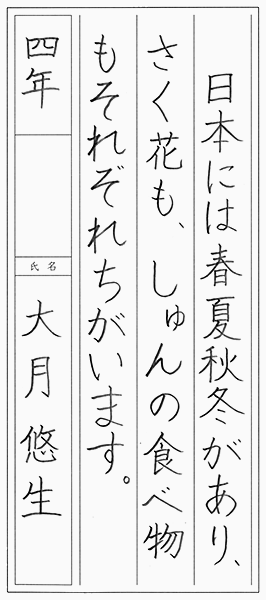 日本には春夏秋冬があり、
さく花も、しゅんの食べ物
もそれぞれちがいます。
四年
氏名
大月悠生